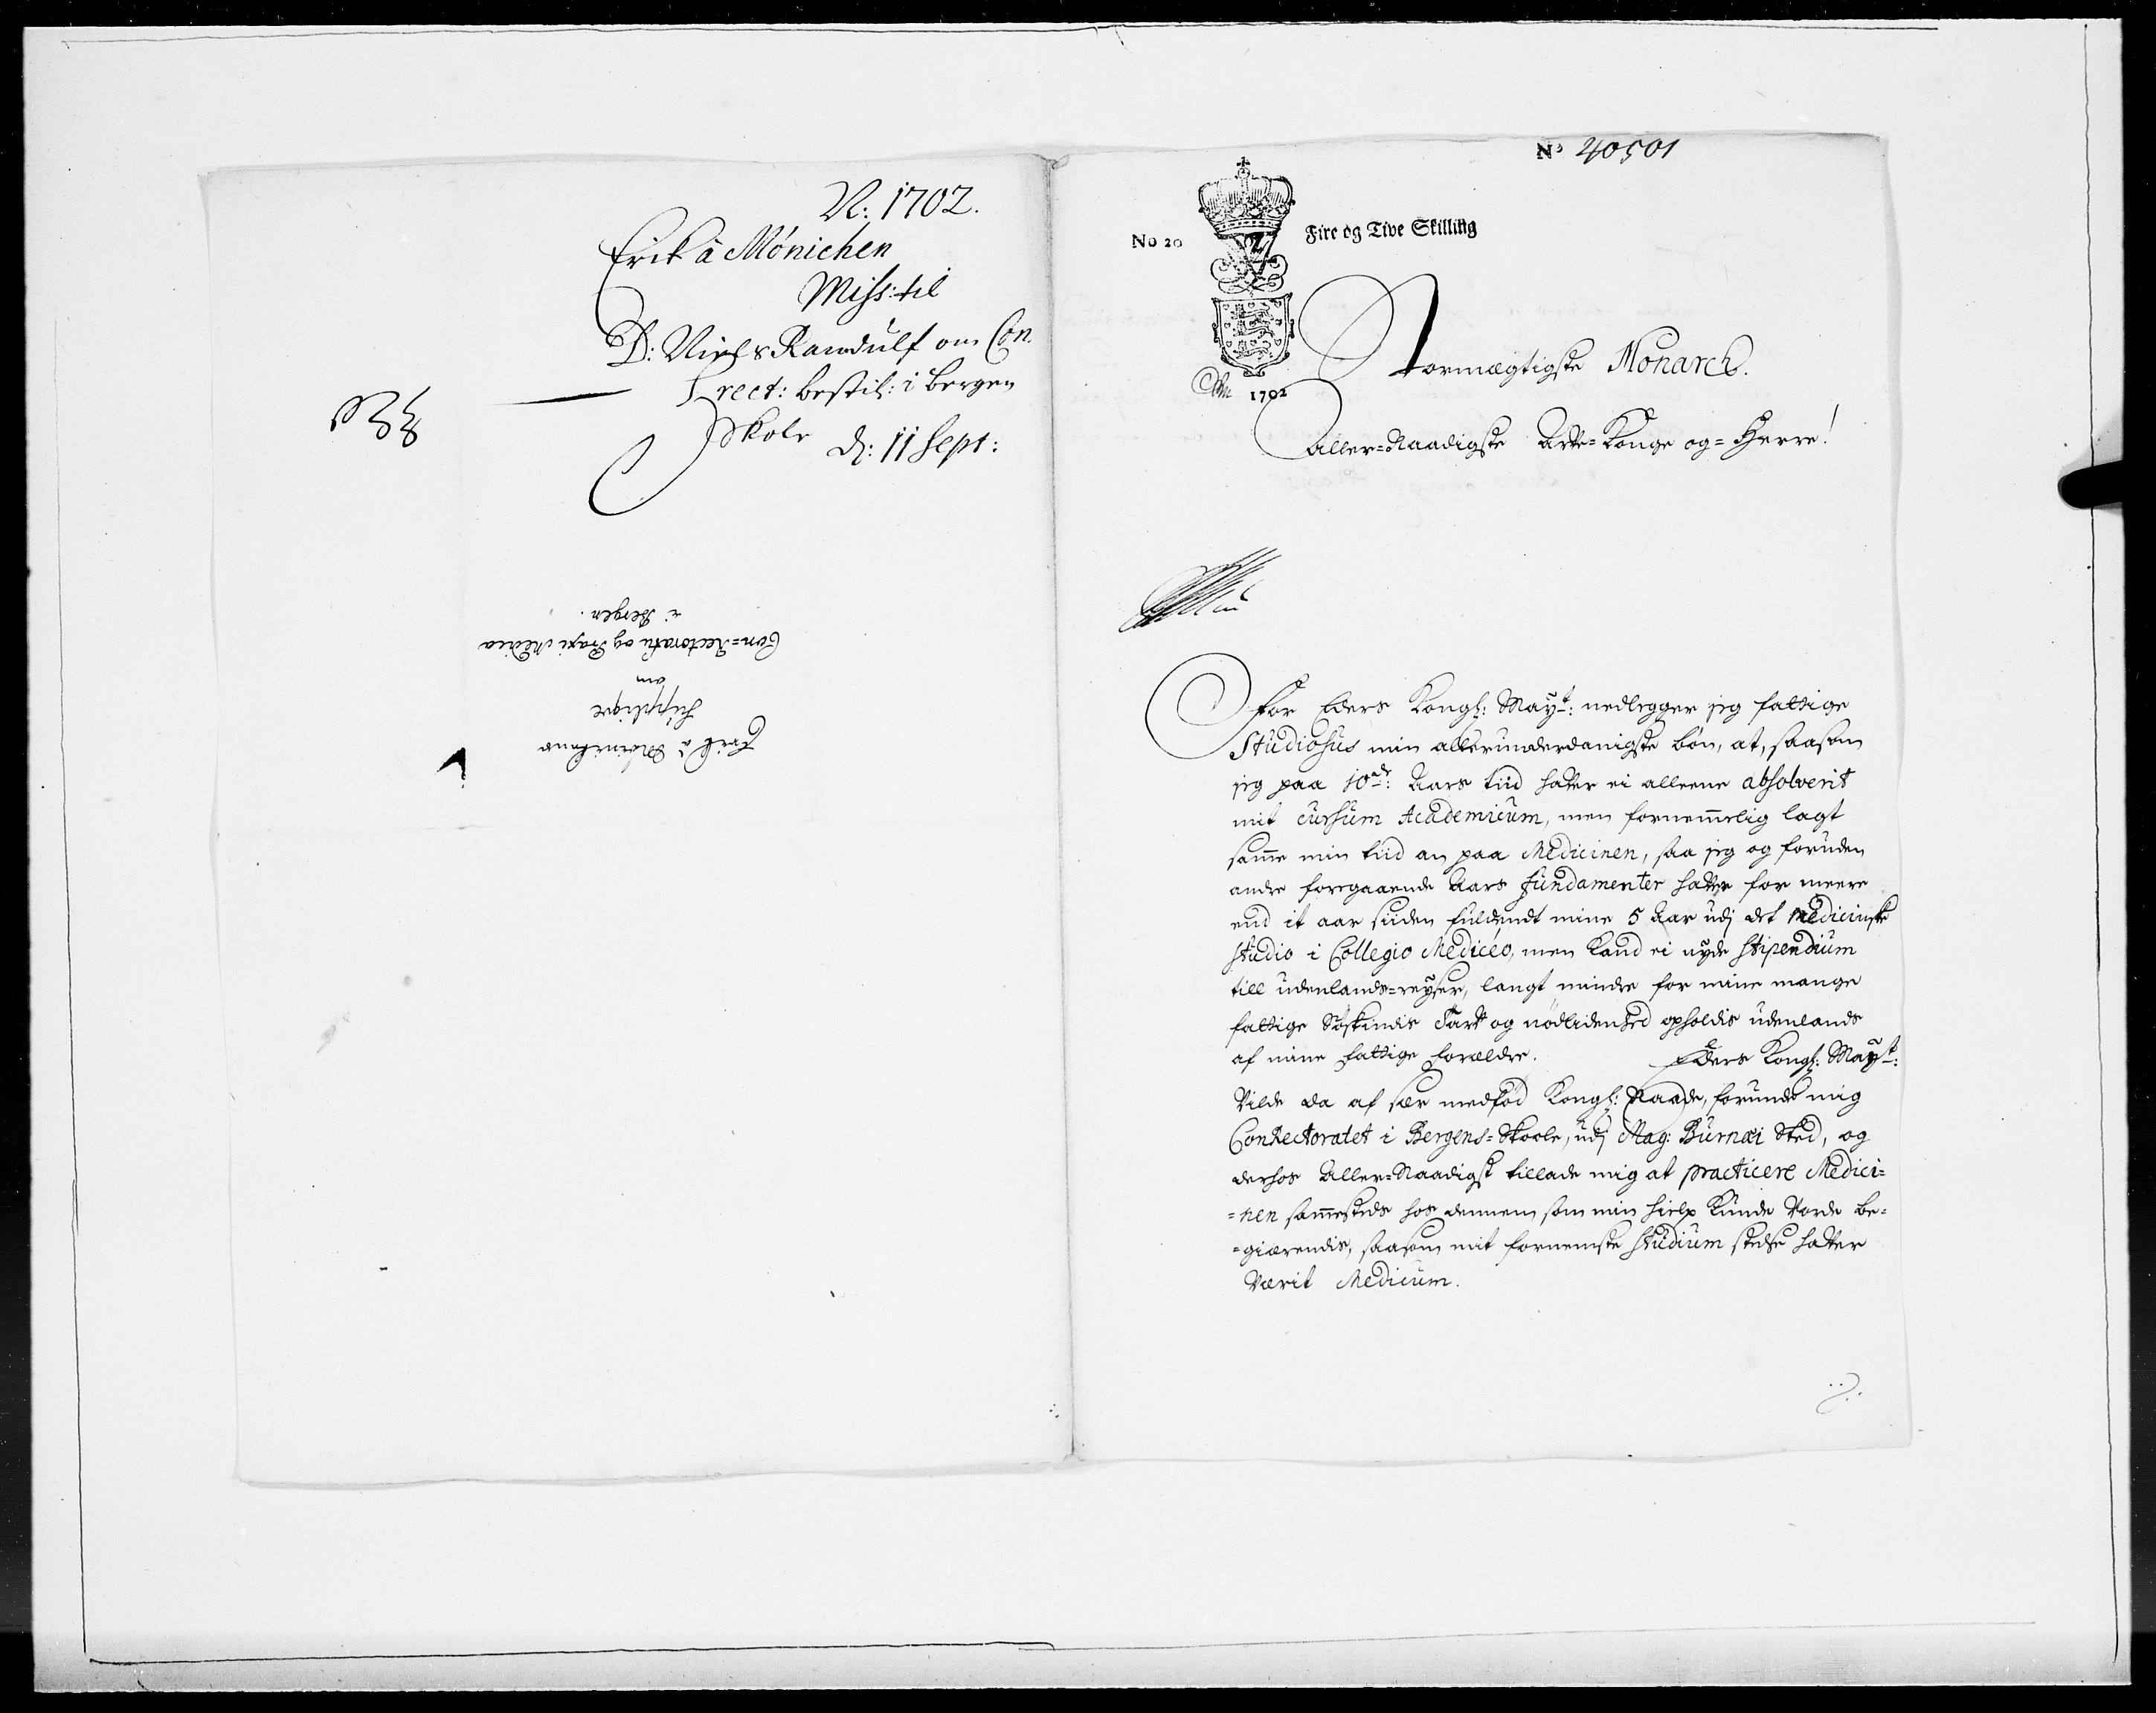 N: 1702.
Erik à Mönichen
Miss: til
D: Niels Randulf om Con-
rect: bestil: i Bergen
Skole
d: 11 Sept:
Erik à Mönichens
Supplique
om
Con=Rectoratu og Praxi Medica
i Bergen.
No 40501
No 20
Fire og Tive Skilling
1702
Stormægtigste Monarch.
Aller=Naadigste Arfve=Konge og=Herre!
For Eders Kongl: Mayt: nedlegger jeg fattige
Studiosus min allerunderdanigste bøn, at, saasom
jeg paa 10de: Aars tiid hafver ei alleene absolverit
mit cursum Academicum, men fornemmelig lagt
samme min tiid an paa Medicinen, saa jeg og foruden
andre foregaaende Aars fundamenter hafver for meere
end it aar siiden fuldendt mine 5 Aar udj det Medicinske
studio i Collegio Mediceo, men kand ei nyde stipendium
till udenlands=reyser, langt mindre for mine mange
fattige Søskindis Tarf og nødlidenhed opholdis udenlands
af mine fattige forældre. Eders Kongl: Mayst:
Vilde da af sær medfød Kongl: Naade, forunde mig
ConRectoratet i Bergens=Skoole, udj Mag: Burnæi Sted, og
derhos Aller=Naadigst tillade mig at practicere Medici=
=nen sammesteds hos dennem, som min hielp kunde vorde be=
=giærendis, saasom mit fornemste studium stedse hafver
Værit Medicum.